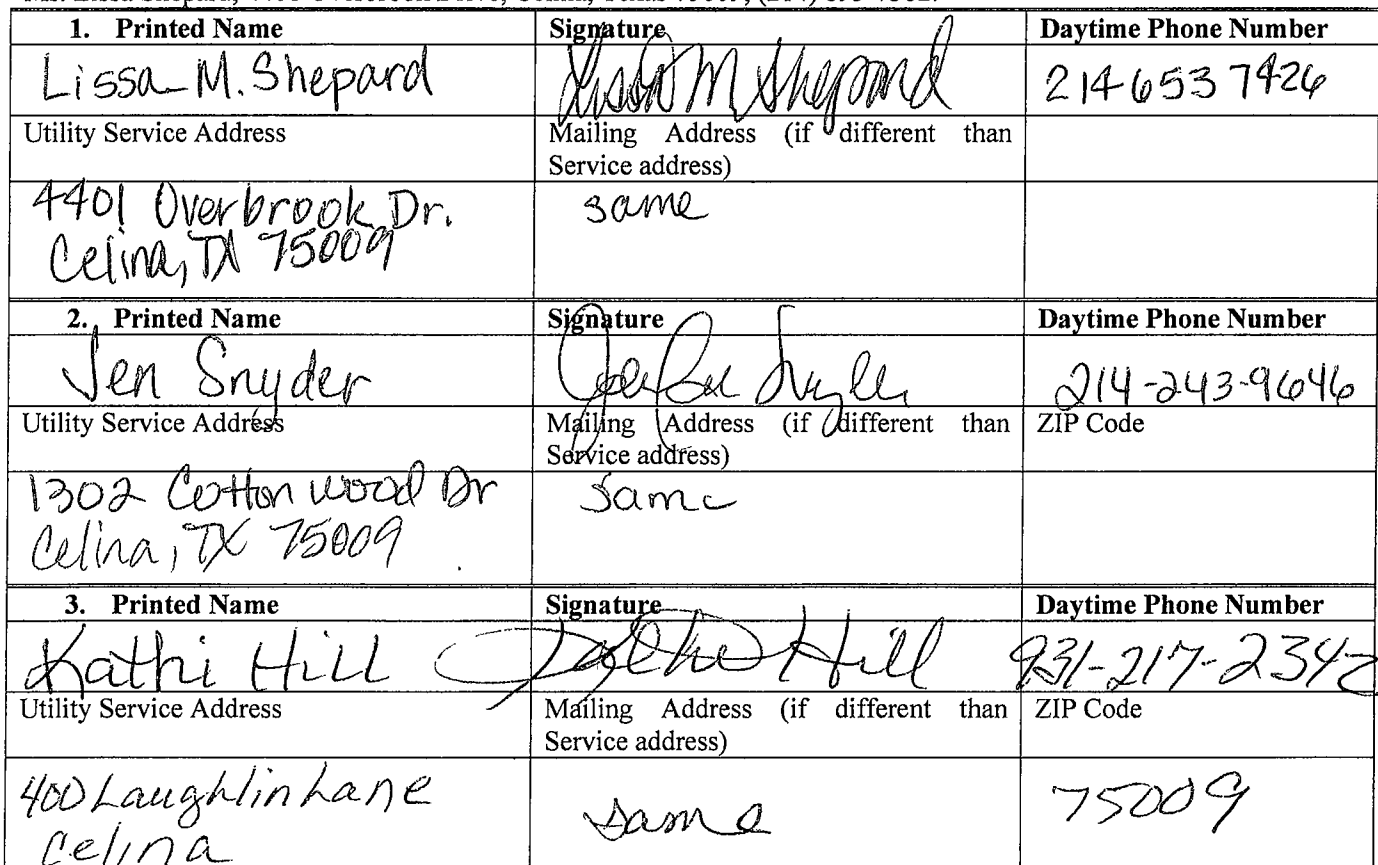 1. Printed Name Signature Daytime Phone Number
Lissa M. Shepard Lissa M Shepard 214 653 7426
Utility Service Address Mailing Address (if different than
Service address)
4401 Overbrook Dr. same
Celina, TX 75009
2. Printed Name Signature Daytime Phone Number
Jen Snyder 214-243-9646
Utility Service Address Mailing Address (if different than ZIP Code
Service address)
1302 Cottonwood Dr same
Celina, TX 75009
3. Printed Name Signature Daytime Phone Number
Kathi Hill Kathi Hill 931-217-2342
Utility Service Address Mailing Address (if different than ZIP Code
Service address)
400 Laughlin Lane same 75009
Celina